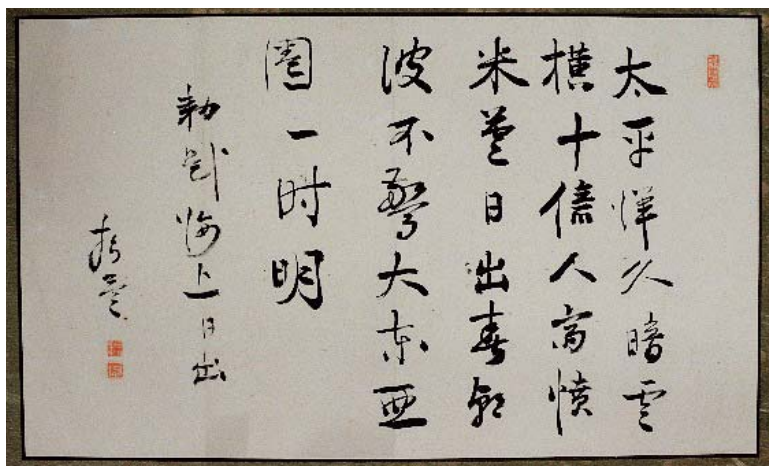 太平洋久暗雲
横十億人齊憤
米英日出春朝
波不驚大東亜
圏一時明
勅海上日出
雲